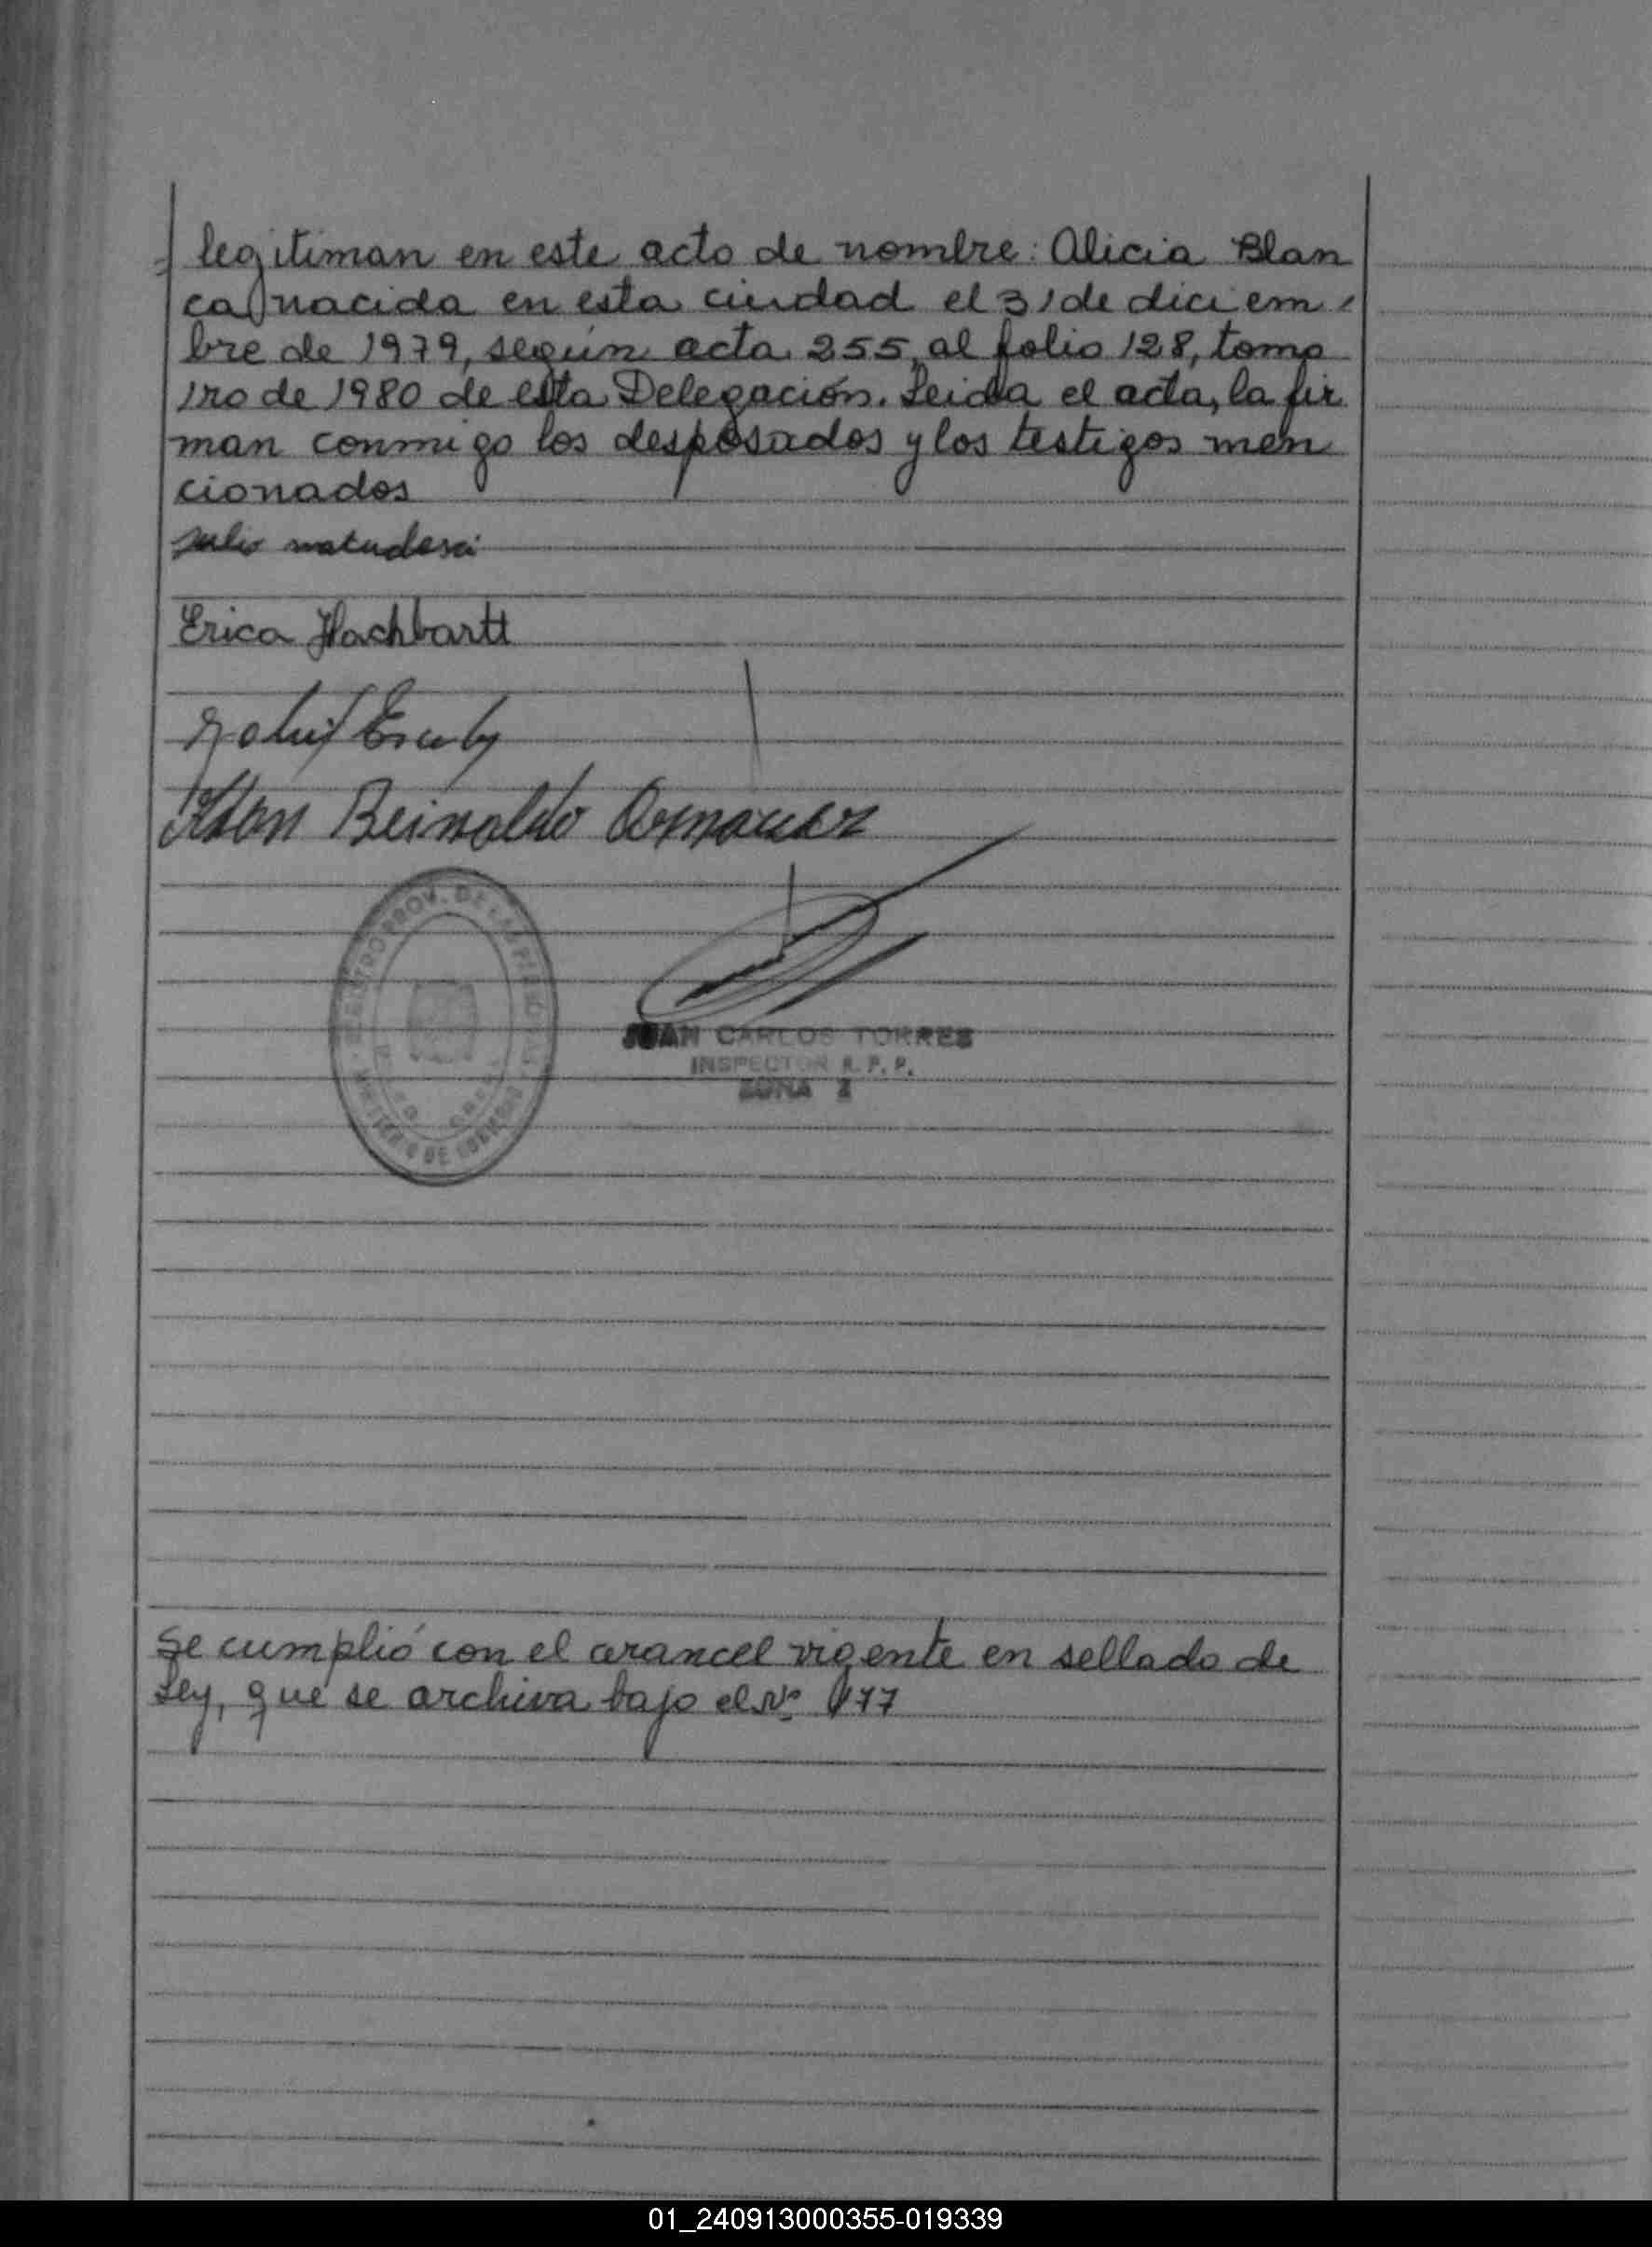 legitiman en este acto de nombre: Alicia Blan
ca, nacida en esta ciudad el 31 de diciem
bre de 1979, según acta 255, al folio 128, tomo
1ro de 1980 de esta Delegación. Leida el acta, la fir
man conmigo los desposados y los testigos men
cionados
Erica Hachbartt
Reinaldo
PROV. DE
JUAN CARLOS TORRES
INSPECTOR R. P. P.
ZONA 2
Se cumplió con el arancel vigente en sellado de
Ley, que se archiva bajo el Nº 177
01_240913000355-019339